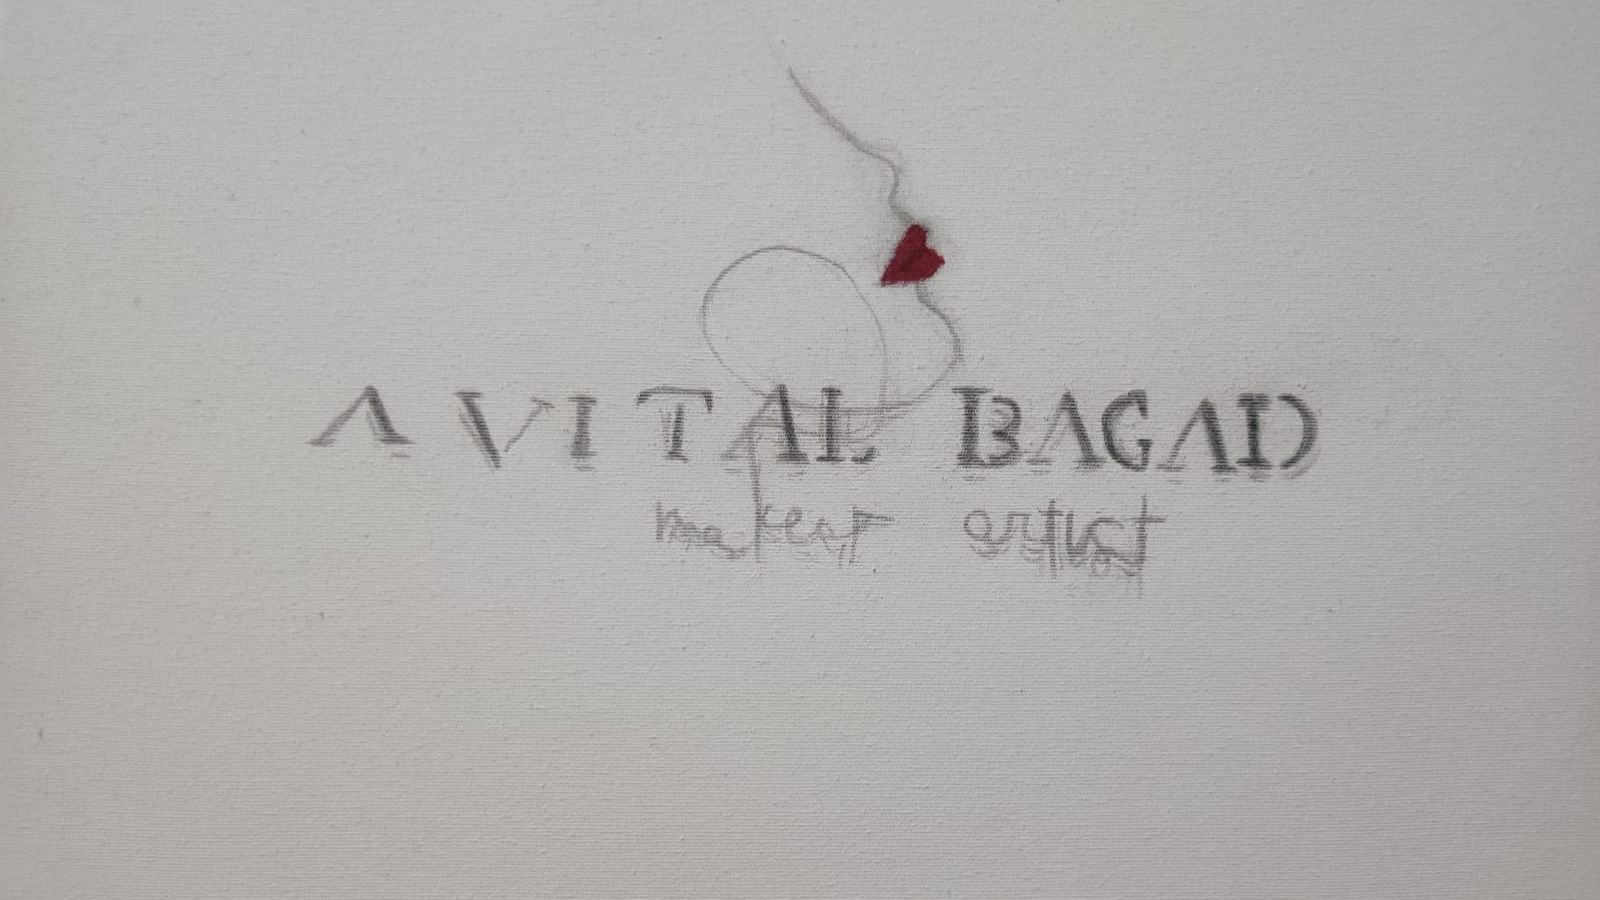 AVITAL BAGAD
makeup artist